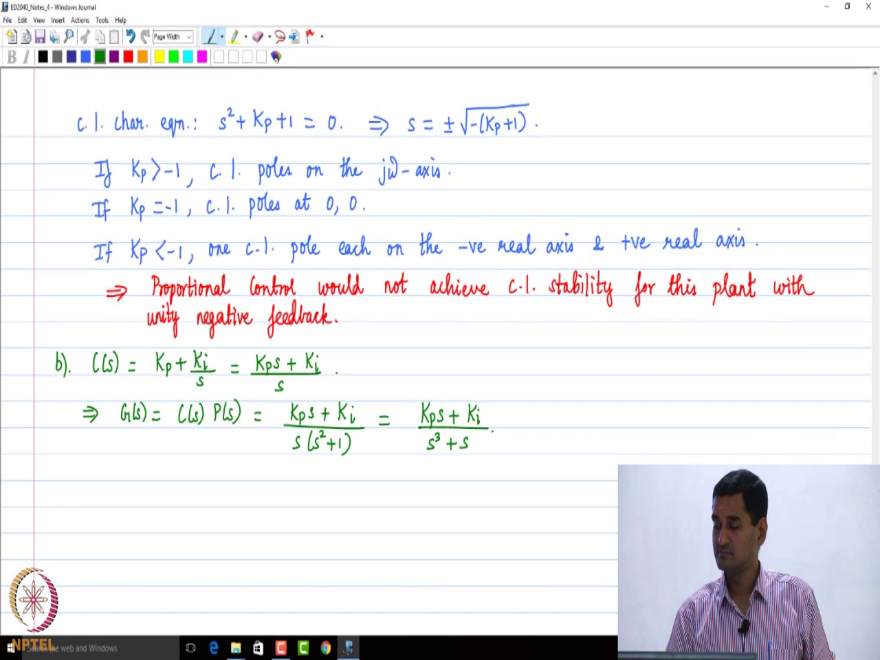 ED2040_Notes_4 - Windows Journal
File Edit View Insert Actions Tools Help
Page Width
B I
c.l. char. eqn.: s² + Kp + 1 = 0. ⇒ s = ± √-(Kp+1) .
If Kp > -1, c.l. poles on the jω-axis.
If Kp = -1, c.l. poles at 0, 0.
If Kp < -1, one c.l. pole each on the -ve real axis & +ve real axis.
⇒ Proportional Control would not achieve c.l. stability for this plant with
unity negative feedback.
b). C(s) = Kp + Ki/s = (Kps + Ki)/s .
⇒ G(s) = C(s) P(s) = (Kps + Ki)/(s(s²+1)) = (Kps + Ki)/(s³ + s) .
NPTEL
the web and Windows